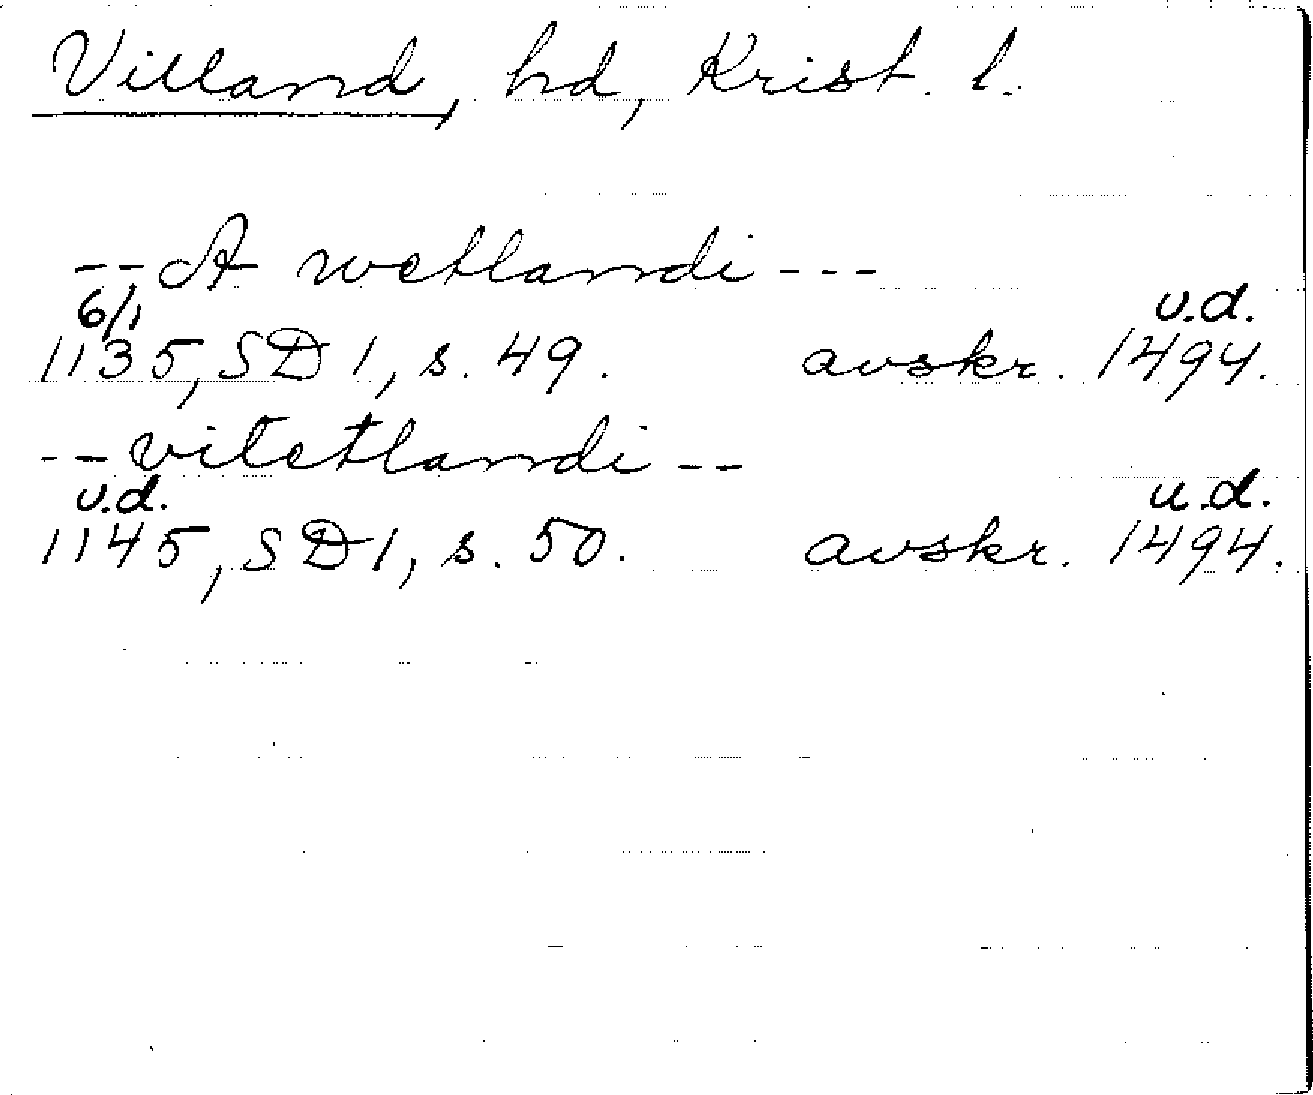 Villand, hd, Krist. l.
-- A wetlandi ---
6/1 u.d.
1135, SD 1, s. 49. avskr. 1494.
-- vitetlandi --
u.d. u.d.
1145, SD 1, s. 50. avskr. 1494.